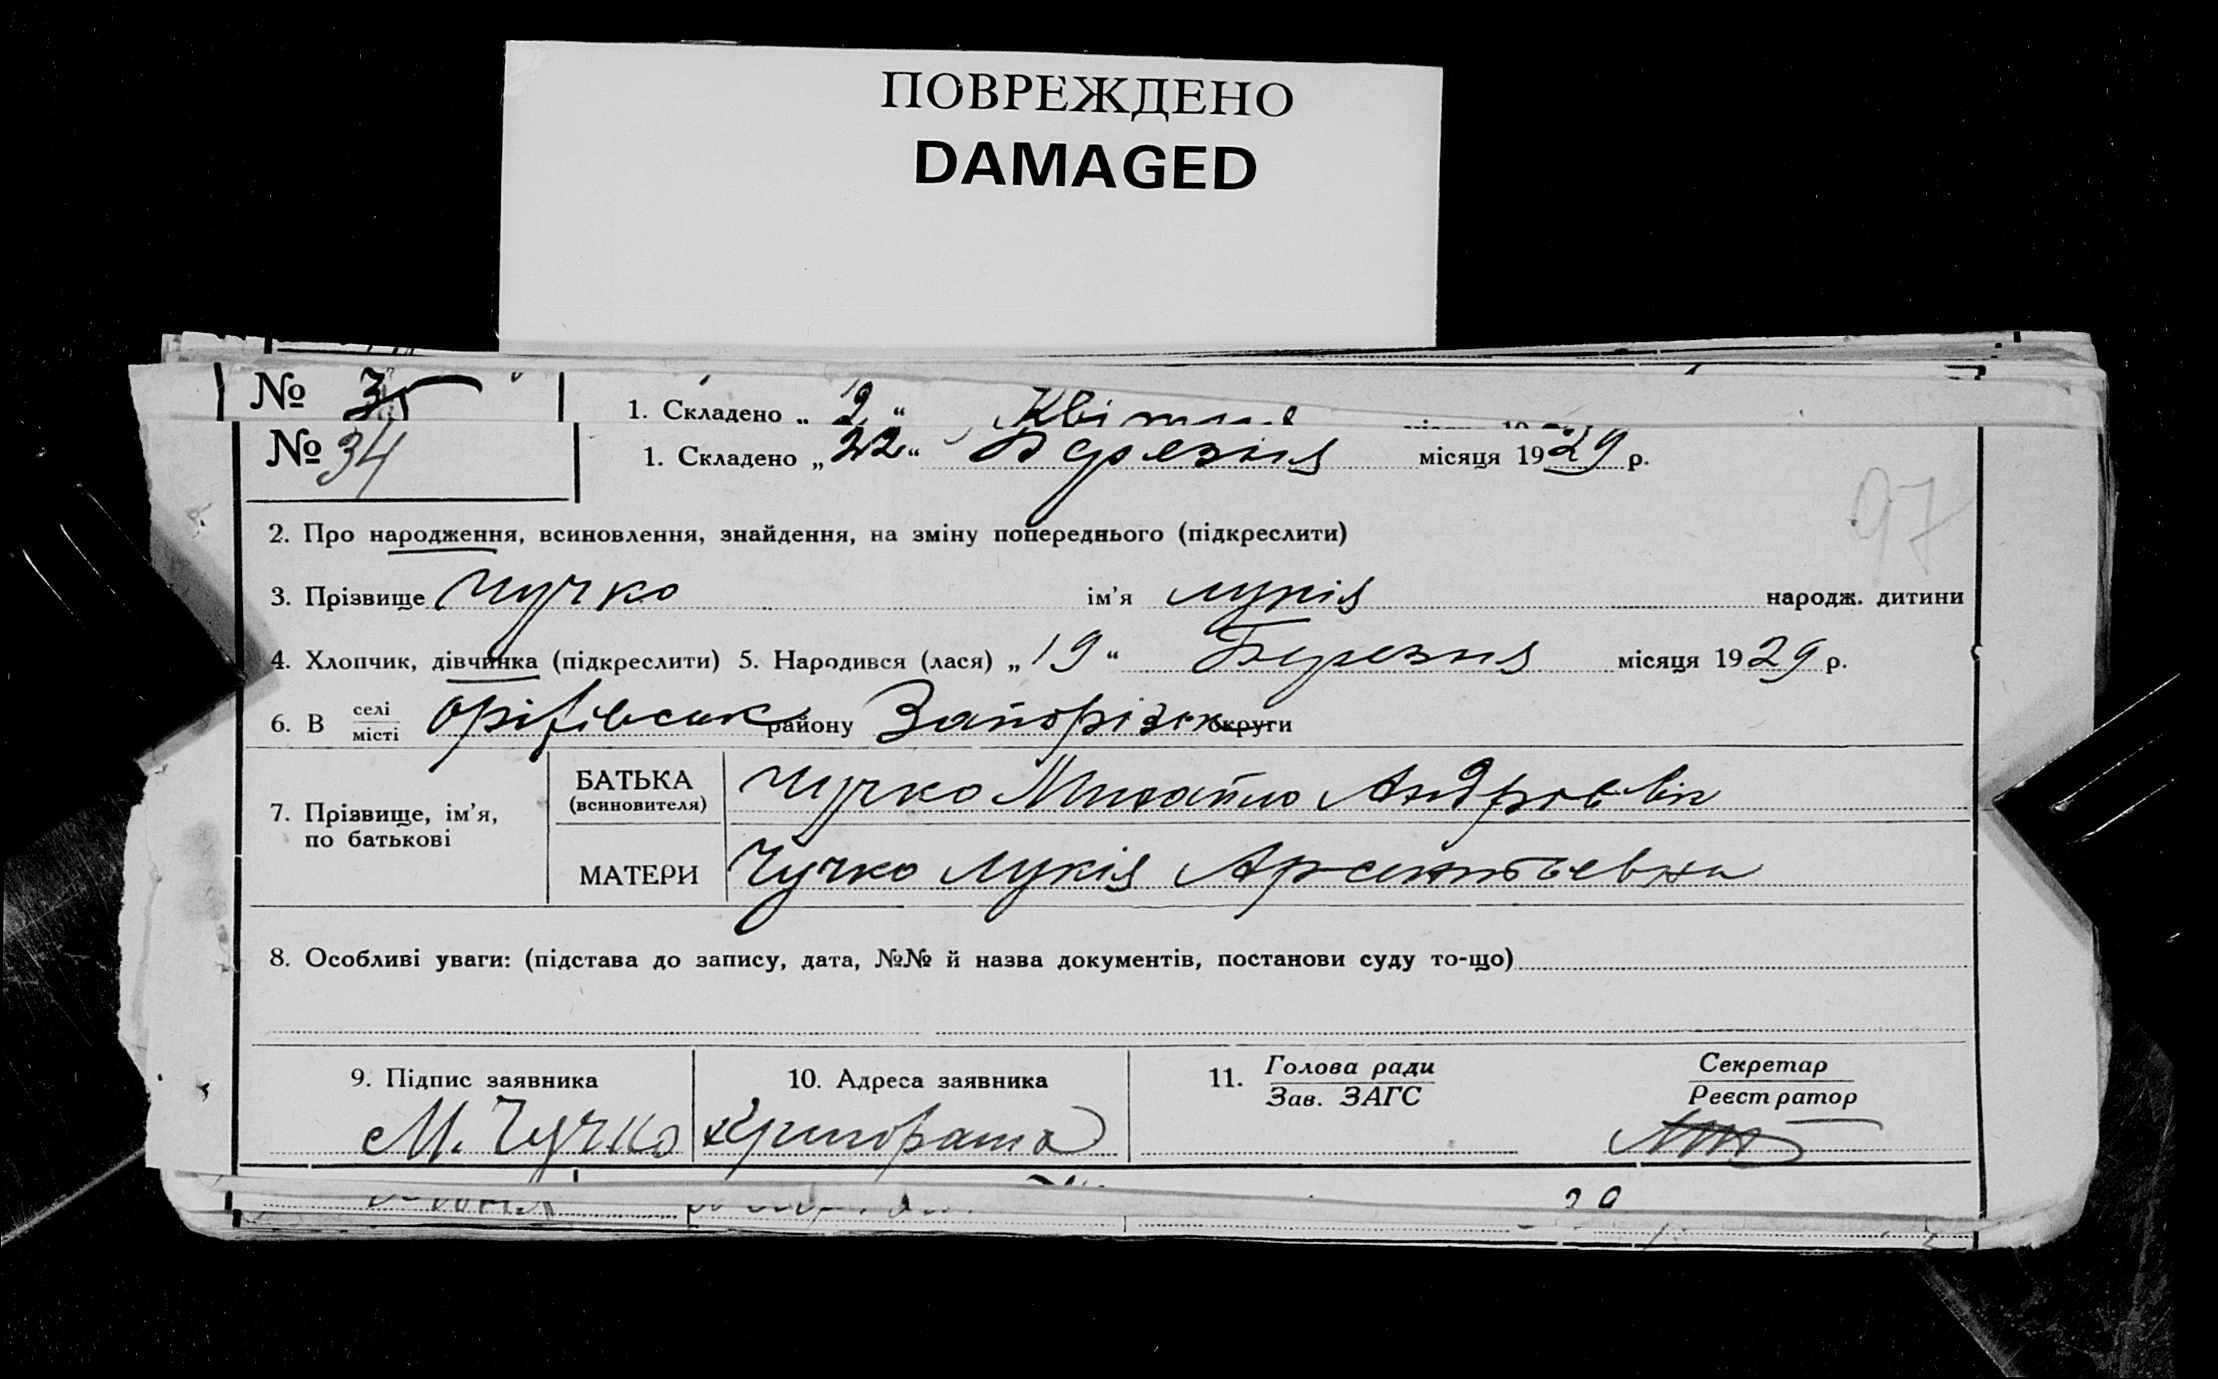 ПОВРЕЖДЕНО
DAMAGED
№ 35
1. Складено „ 2 “ Квітня
№ 34
1. Складено „ 22 “ Березня місяця 1929 р.
97
2. Про народження, всиновлення, знайдення, на зміну попереднього (підкреслити)
3. Прізвище Чучко ім'я Лукія народж. дитини
4. Хлопчик, дівчинка (підкреслити) 5. Народився (лася) „ 19 “ Березня місяця 1929 р.
6. В селі місті Оріхівськ району Запорізьк округи
7. Прізвище, ім'я, по батькові
БАТЬКА (всиновителя) Чучко Михайло Андрієвіч
МАТЕРИ Чучко Лукія Арсентьевна
8. Особливі уваги: (підстава до запису, дата, №№ й назва документів, постанови суду то-що)
9. Підпис заявника 10. Адреса заявника 11. Голова ради Зав. ЗАГС Секретар Реєстратор
М. Чучко